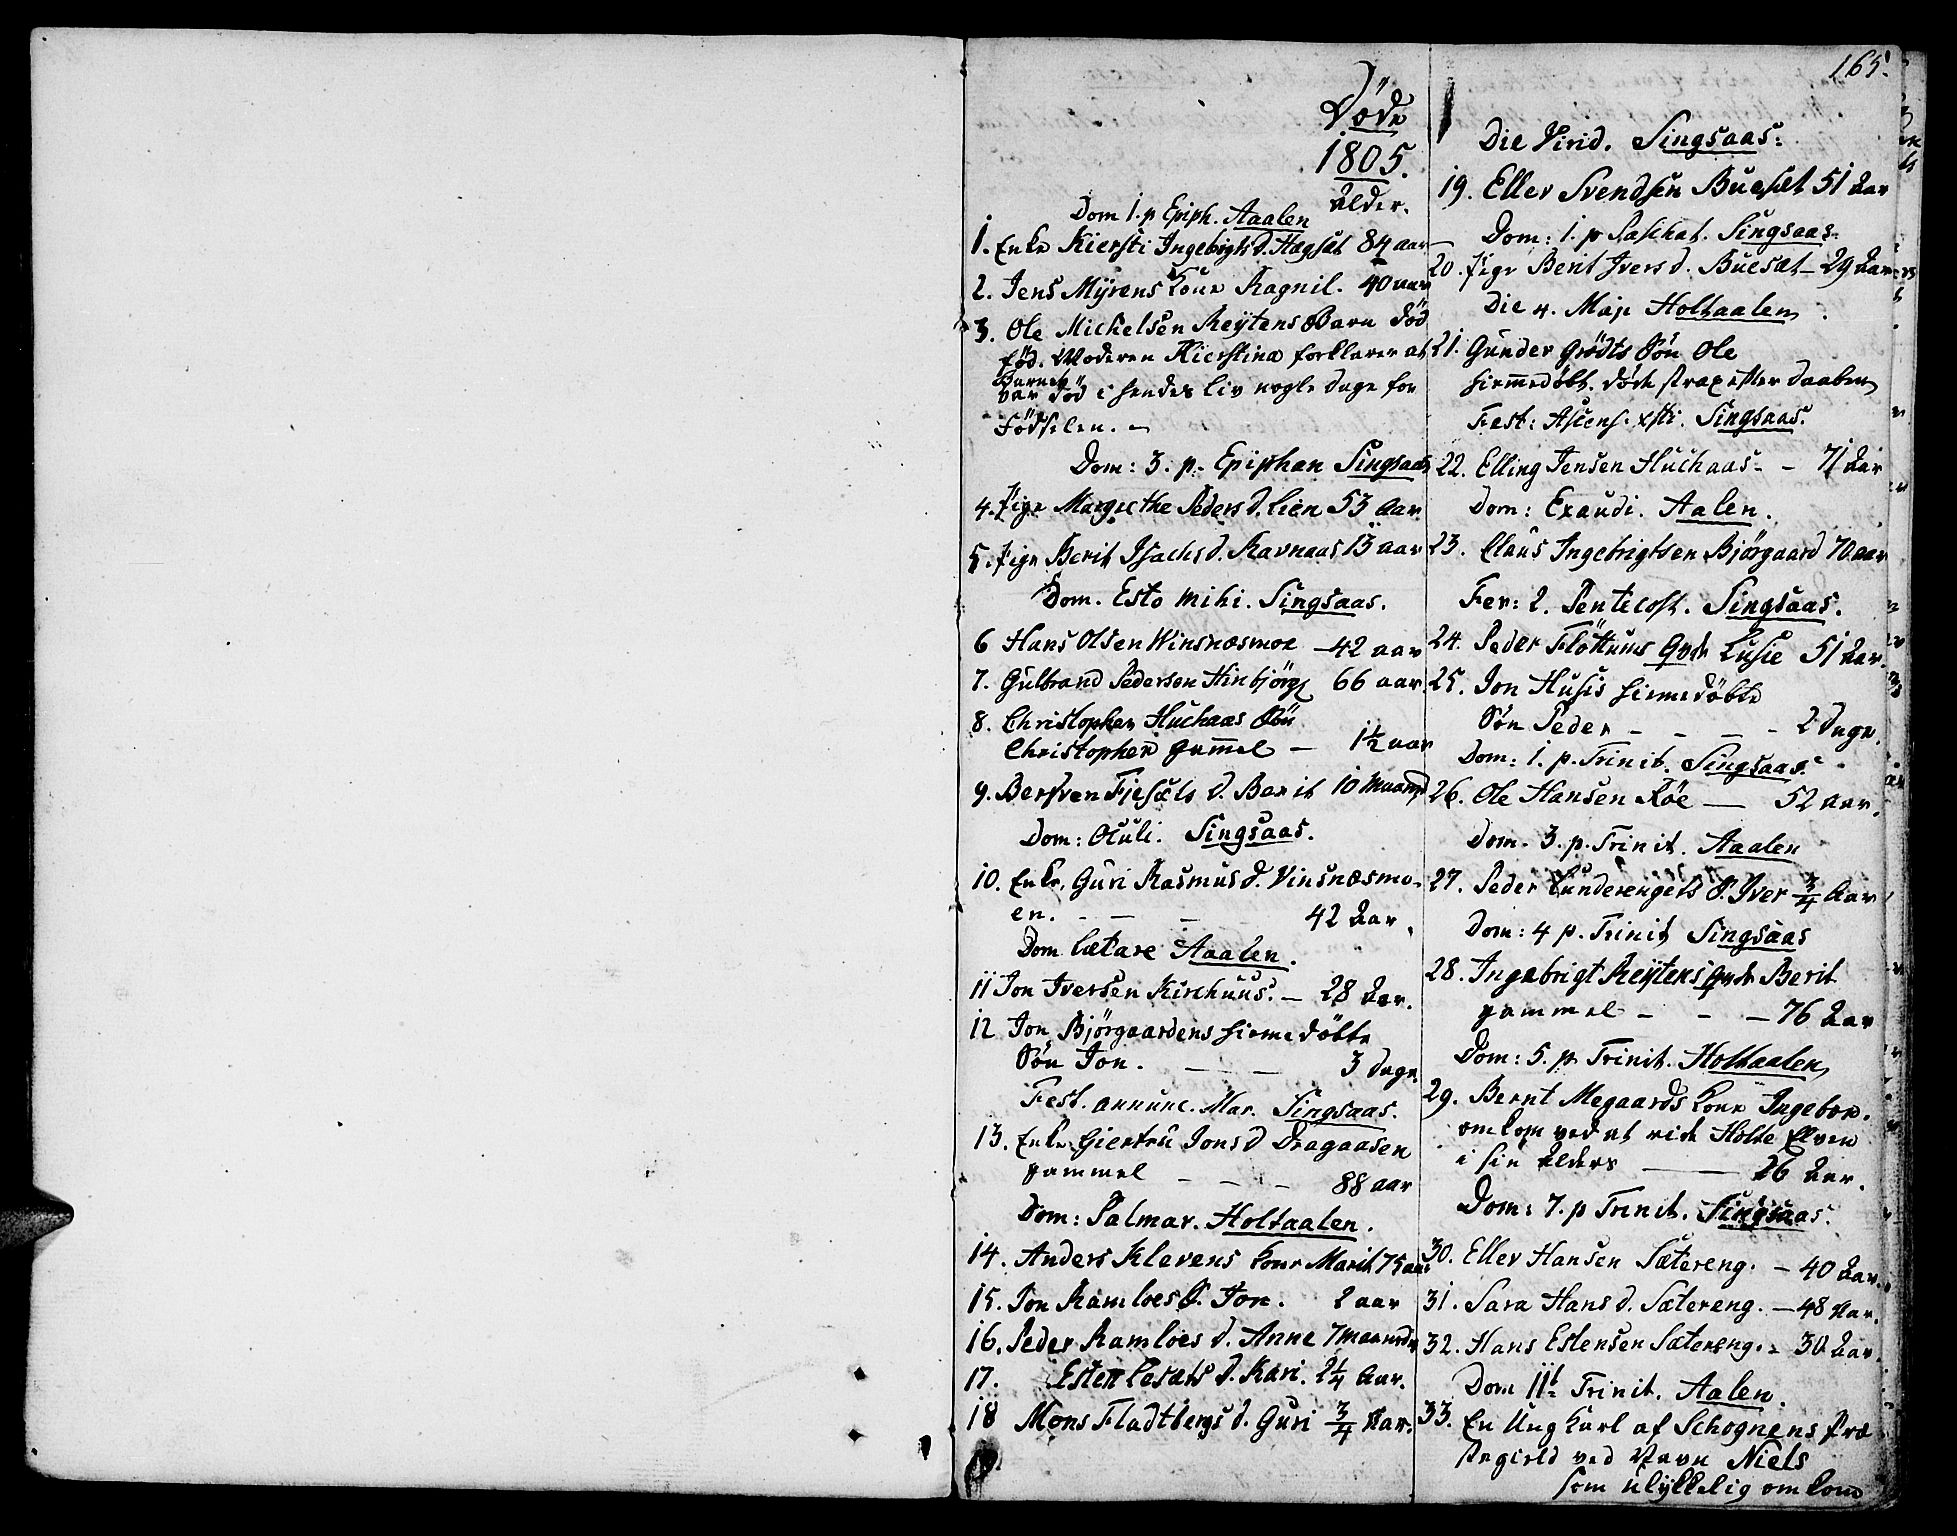 Døde
1805.
Alder.
Dom 1. p. Epiph. Aaalen
1. Enke Kiersti Ingebrigts d. Hægsæt 84 aar
2. Jens Mÿrens Kone Ragnil. 40 aar
3. Ole Michelsen Reÿtens Barn død
fød. Moderen Kierstina forklarer at
Barnet
var død i hendes liv nogle dage før
Fødselen. –
Dom: 3. p. Epiphan Singsaas
4. Pige Margrethe Peders d. Lien 53 Aar
5. Pige Berit Isachs d. Ravnaas 13 aar
Dom. Esto mihi. Singsaas.
6 Hans Olsen Winsnæsmoe – 42 aar
7. Gulbrand Pedersen Hinbjörg 66 aar.
8. Christopher Huchaas Søn
Christopher gammel – 1½ aar
9. Bersven Fjesæts d. Berit 10 Maaned
Dom: Oculi. Singsaas.
10. Enke, Guri Rasmus d. Vinsnæsmo-
en. – – – 42 Aar.
Dom Lætare Aaalen.
11 Jon Iversen Kirchuus. – 28 Aar.
12 Jon Bjørgaardens hiemedøbte
Søn Jon. – – 3 Dage.
Fest. annunc. Mar. Singsaas.
13. Enke Giertru Jons d Dragaasen
gammel – – – 88 aar
Dom: Palmar. Holtaalen.
14. Anders Klevens Kone Marit 75 aar
15. Jon Ramloes S. Jon. 2 aar
16. Peder Ramloes d. Anne 7 maaneder
17. Esten Lesæts d. Kari. 2¼ Aar.
18 Mons Fladtbergs d. Guri ¾ Aar.
165.
Die Virid. Singsaas.
19. Eller Svendsen Buesæt 51 Aar
Dom: 1. p Paschat. Singsaas
20. Pige Berit Ivers d. Buesæt – 29 Aar
Die 4. Maji Holtaalen
21. Gunder Grødts Søn Ole
hiemedøbt. døde strax efter Daaben
Fest: Ascens. xsti. Singsaas.
22. Elling Jensen Huchaas – – 71 Aar
Dom: Exaudi. Aalen.
23. Claus Ingebrigtsen Bjørgaard 70 aar
Fer: 2. Pentecost. Singsaas.
24. Peder Fløttums Qvde Lusie 51 Aar.
25. Jon Husis hiemedøbte
Søn Peder – – – – 2 Dage.
Dom: 1. p. Trinit. Singsaas.
26. Ole Hansen Röe – 52 aar.
Dom. 3. p. Trinit. Aaalen
27. Peder Lunderengets S. Iver ¾ Aar
Dom: 4 p. Trinit Singsaas
28. Ingebrigt Reÿtens Qvde Berit
gammel – – – 76 Aar
Dom: 5. p. Trinit. Holtaalen
29. Bernt Megaards Kone Ingebor.
omkom ved at ride Holte Elven
i sin Alders – 26 Aar.
Dom: 7. p Trinit. Singsaas.
30. Eller Hansen Sætereng. – 40 Aar.
31. Sara Hans d. Sætereng. – 48 Aar.
32. Hans Estensen Sætereng. – 30 Aar.
Dom 11t Trinit. Aalen.
33. En Ung Karl af Schognens Præ
stegield ved Navn Niels
som ulÿkkelig omkom